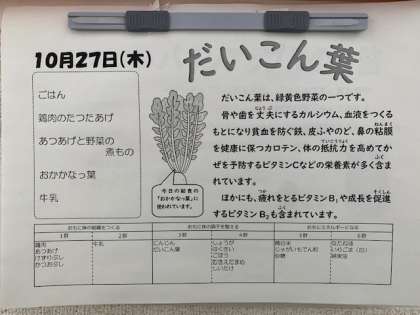 10月27日(木)
だいこん葉
ごはん
鶏肉のたつたあげ
あつあげと野菜の
煮もの
おかかなっ葉
牛乳
今日の給食の
「おかかなっ葉」に
使われています。
だいこん葉は、緑黄色野菜の一つです。
骨や歯を丈夫にするカルシウム、血液をつくる
もとになり貧血を防ぐ鉄、皮ふやのど、鼻の粘膜
を健康に保つカロテン、体の抵抗力を高めてか
ぜを予防するビタミンCなどの栄養素が多く含ま
れています。
ほかにも、疲れをとるビタミンB₁や成長を促進
するビタミンB₂も含まれています。
おもに体の組織をつくる
おもに体の調子を整える
おもにエネルギーになる
1群 2群 3群 4群 5群 6群
鶏肉
あつあげ
けずりぶし
かつおぶし
牛乳
にんじん
だいこん葉
しょうが
はくさい
ごぼう
むきえだまめ
しいたけ
精白米
じゃがいもでん粉
砂糖
なたね油
いりごま(白)